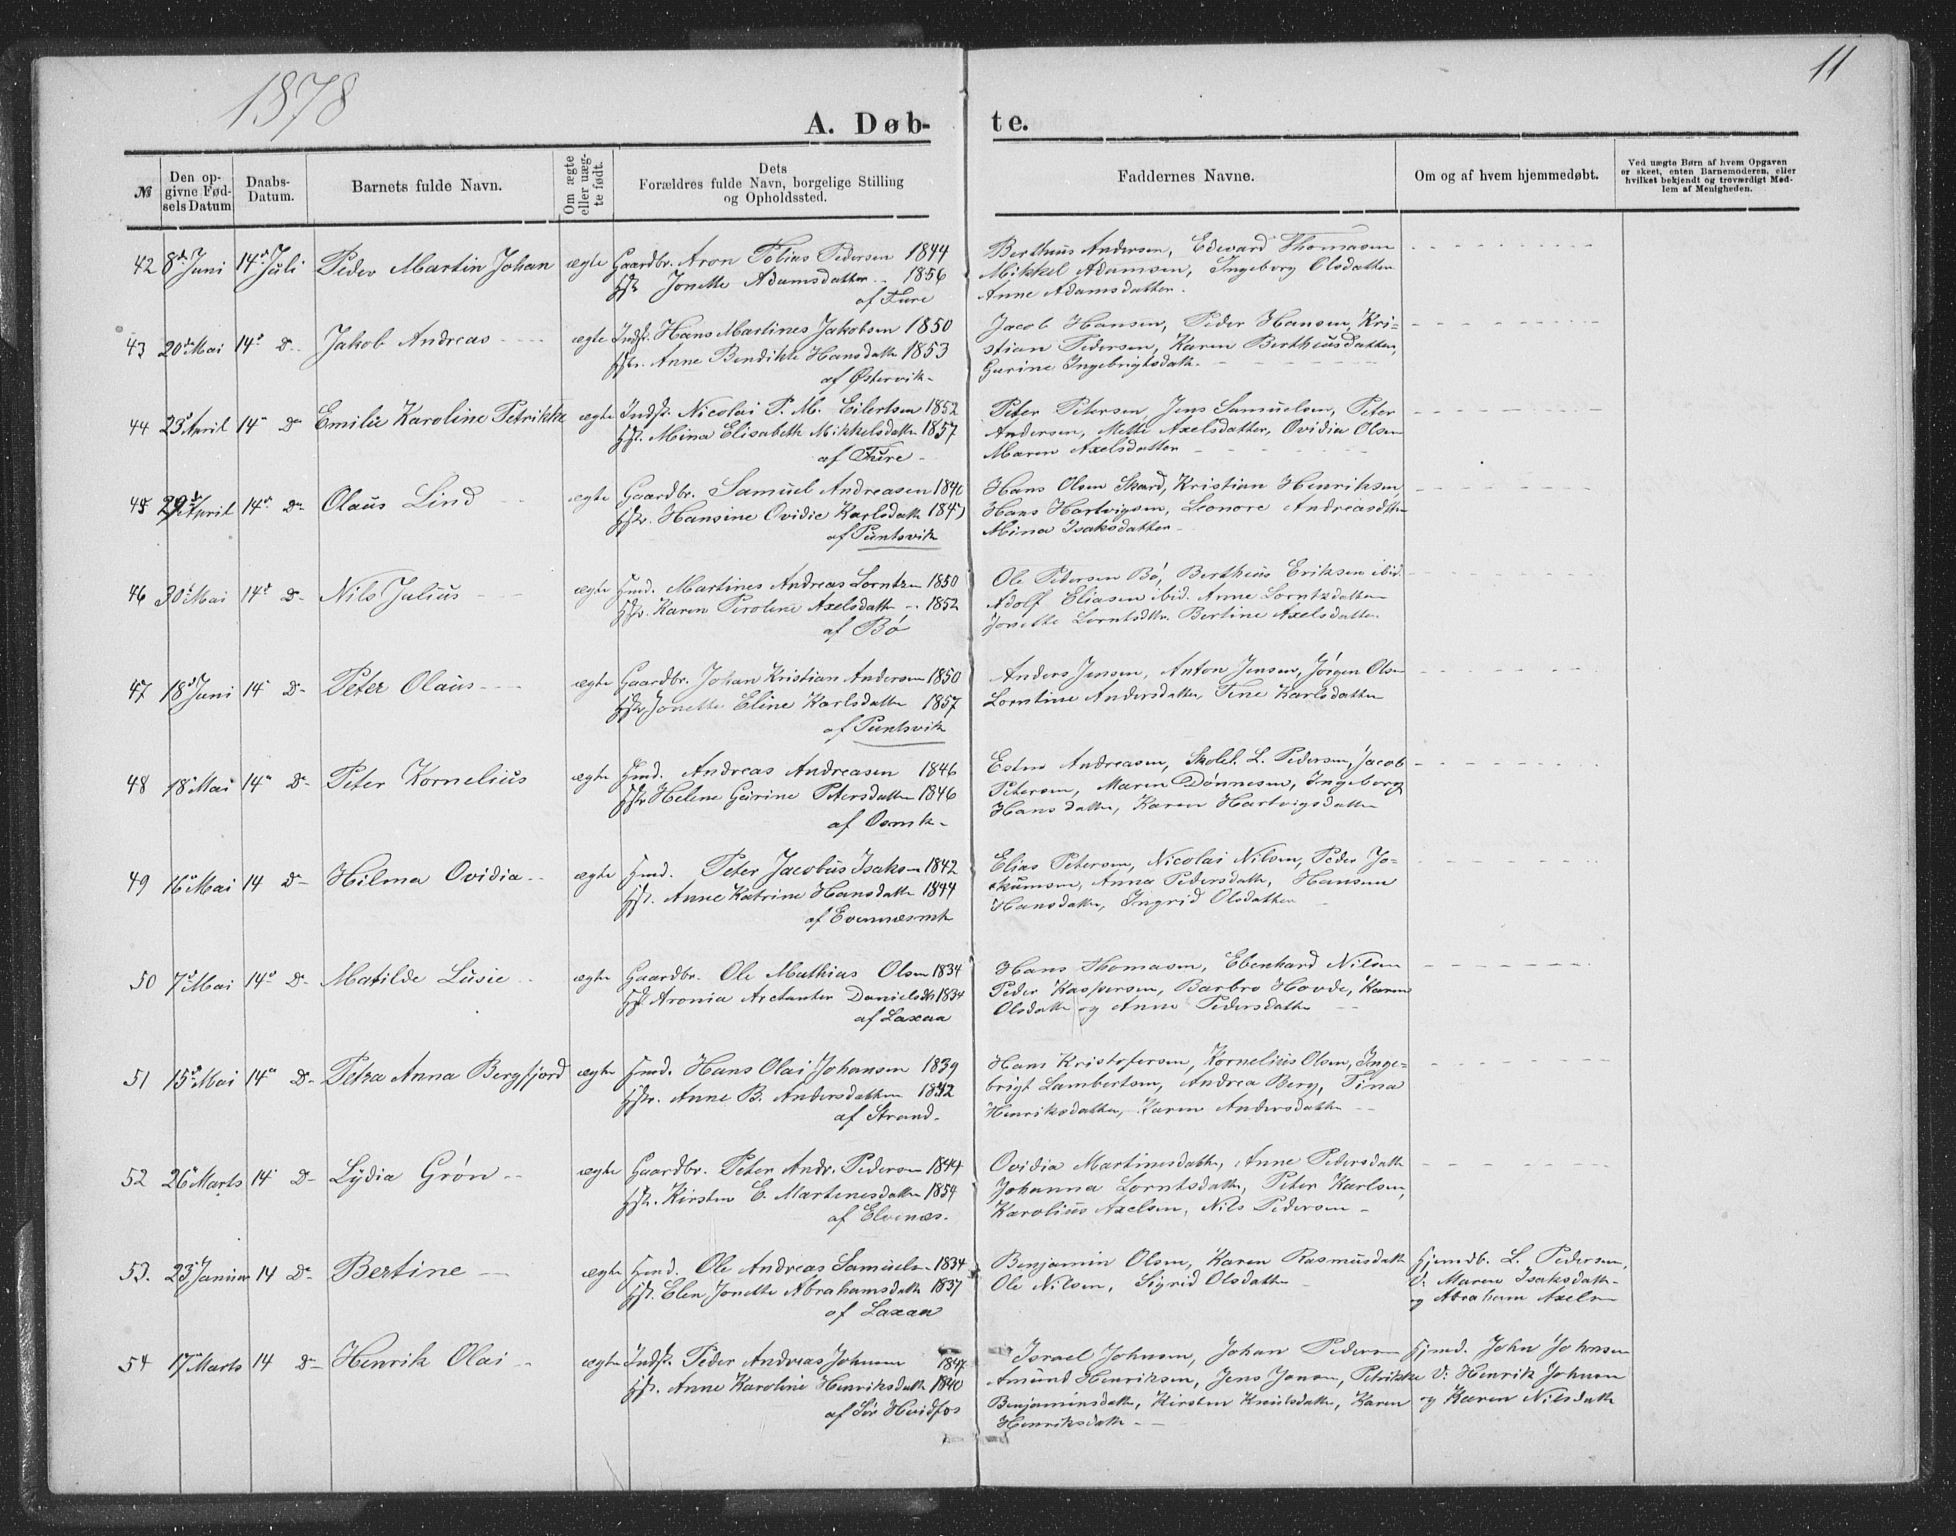 1878
11
A. Døb-
te.
№
Den op-
givne Fød-
sels Datum
Daabs-
Datum.
Barnets fulde Navn.
Om ægte
eller uæg-
te født.
Dets
Forældres fulde Navn, borgelige Stilling
og Opholdssted.
Faddernes Navne.
Om og af hvem hjemmedøbt.
Ved uægte Børn af hvem Opgaven
er skeet, enten Barnemoderen, eller
hvilket bekjendt og troværdigt Med-
lem af Menigheden.
42 8de Juni 14de Juli Peder Martin Johan ægte Gaardbr. Aron Tobias Pedersen 1844
Hst. Jonette Adamsdatter 1856
af Fure
Berthius Andersen, Edevard Thomasen
Mikkel Adamsen, Ingeborg Olsdatter
Anne Adamsdatter.
43 20de Mai 14de Do Jakob Andreas ægte Indst. Hans Martines Jakobsen 1850
Hst. Anne Bendikte Hansdatt 1853
af Østervik
Jacob Hansen, Peder Hansen, Kri-
stian Pedersen, Karen Bertheusdatter,
Gurine Ingebrigtsdatt.
44 23 April 14 Do Emilie Karoline Petrikke ægte Indst. Nicolai P. M. Eilertsen 1852
Hst. Mina Elisabeth Mikkelsdatt 1857
af Fure
Peter Petersen, Jens Samuelsen, Peter
Andersen, Mette Axelsdatter, Ovidia Olsen
Maren Axelsdatter
45 29 April 14de Do Olaus Lind ægte Gaardbr. Samuel Andreasen
Hst. Hansine Ovidie Karlsdatt
af Puntsvik
Hans Olsen Skard, Kristian Henriksen
Hans Hartvigsen, Leonore Andreasdtr
Mina Isaksdatter
46 30 Mai 14de Do Nils Julius ægte Hmd. Martines Andreas Lorntzen 1850
Hst. Karen Peroline Axelsdatt 1852
af Bø
Ole Pedersen Bø, Bertheus Eriksen ibid.
Adolf Eliasen ibid. Anne Lorntzdatter
Jonette Lorntsdtr. Bertine Axelsdatter.
47 18de Juni 14 Do Peter Olaus ægte Gaardbr. Johan Kristian Andersen 1850
Hst. Jonette Eline Karlsdatter 1857
af Puntsvik
Anders Jensen, Anton Jensen, Jørgen Olsen
Lorntine Andersdatter, Tine Karlsdatter
48 18 Mai 14 Do Peter Kornelius ægte Hmd. Andreas Andreasen 1846
Hst Helene Gurine Petersdatter 1846
af
Andreasen, Skolel. L. Pedersen, Jacob
Petersen, Maren Dønnesen, Ingeborg
Hansdatter, Karen Hartvigsdatter
49 16 Mai 14 Do Hilma Ovidia ægte Hmd. Peter Jacobus Isaksen 1842
Hst. Anne Katrine Hansdatt 1844
af Evennæsmk
Elias Petersen, Nicolai Nilsen, Peder Jo-
akumsen, Anna Pedersdatter,
Hansdatter, Ingrid Olsdatter
50 7de Mai 14de Do Matilde Lusie ægte Gaardbr. Ole Mathias Olsen 1834
Hst Aronia Danielsdtr 1834
af Laxaa
Hans Thomasen, Ebenhard Nilsen
Peder Kaspersen, Barbro Hovde, Karen
Olsdatter og Anne Pedersdatter
51 15 Mai 14 Do Petra Anna Bergfjord ægte Hmd. Hans Olai Johansen 1839
Hst. Anne B. Andersdatter 1842
af Strand.
Hans Kristofersen, Kornelius Olsen, Inge-
brigt Lambertsen, Andrea Berg, Tina
Henriksdatter, Karen Andersdatter
52 26 Marts 14 Do Lydia Grøn ægte Gaardbr. Peter Andr. Pedersen 1844
Hst. Kirsten E. Martinesdatter 1854
af Elvenæs.
Ovidia Martinesdatter, Anne Pedersdatter
Johanna Lorntsdatter, Peter Karlsen,
Karolius Axelsen, Nils Pedersen
53. 23 Januar 14 Do Bertine ægte Hmd. Ole Andreas Samuels. 1834
Hst. Elen Jonette Abrahamsdatt 1837
af Laxaa
Benjamin Olsen, Karen Rasmusdatt
Ole Nilsen, Sigrid Olsdatter
Hjemdb. L. Pedersen,
V: Maren Isaksdatt.
og Abraham Axelsen
54 17 Marts 14 Do Henrik Olai ægte Indst. Peder Andreas Johnsen 1847
Hst. Anne Karoline Henriksdatt 1840
af Sør Hvidfos
Israel Johnsen, Johan Pedersen
Amund Henriksen, Jens Jensen, Petrikke
Benjaminsdatt, Kirsten Knutsdatt, Karen
Henriksdatt
Hjmd. John Johnsen
V: Henrik Johnsen
og Karen Nilsdatt